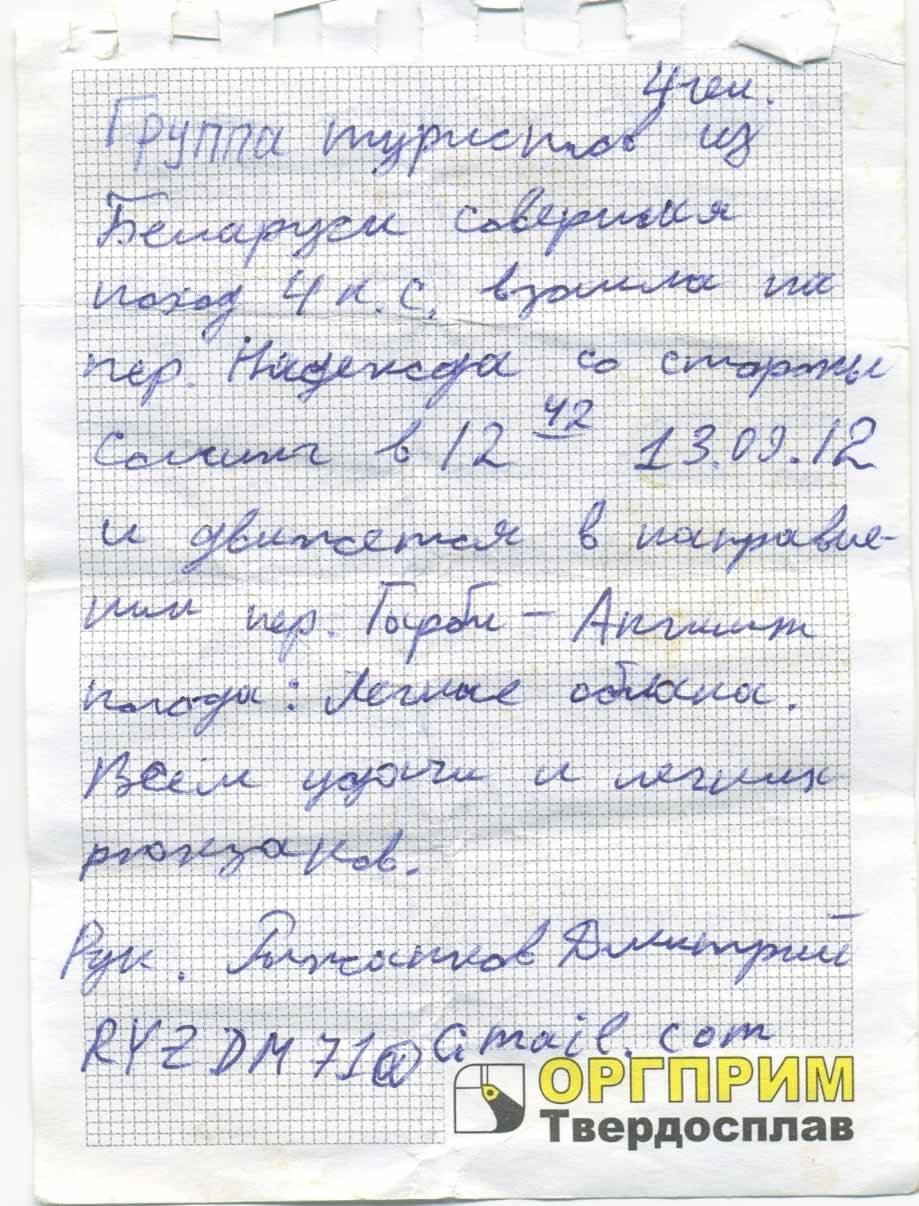 4 чел.
Группа туристов из
Беларуси совершая
поход 4 к.с. взошла на
пер. Надежда со стороны
в 12 42 13.09.12
и движется в направле-
нии пер. -
погода: Легкие облака.
Всем удачи и легких
рюкзаков.
Рук. Рыжанков Дмитрий
RYZDM71@Gmail.com
ОРГПРИМ
Твердосплав